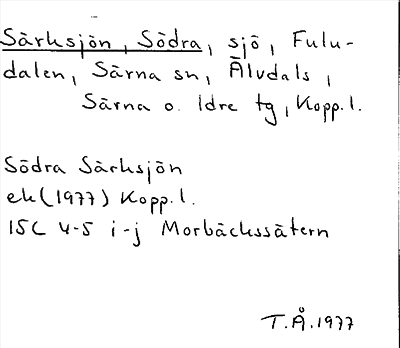 Särksjön, Södra, sjö, Fulu-
dalen, Särna sn, Älvdals,
Särna o. Idre tg, Kopp.l.
Södra Särksjön
ek(1977) Kopp.l.
15C 4-5 i-j Morbäckssätern
T.Å.1977